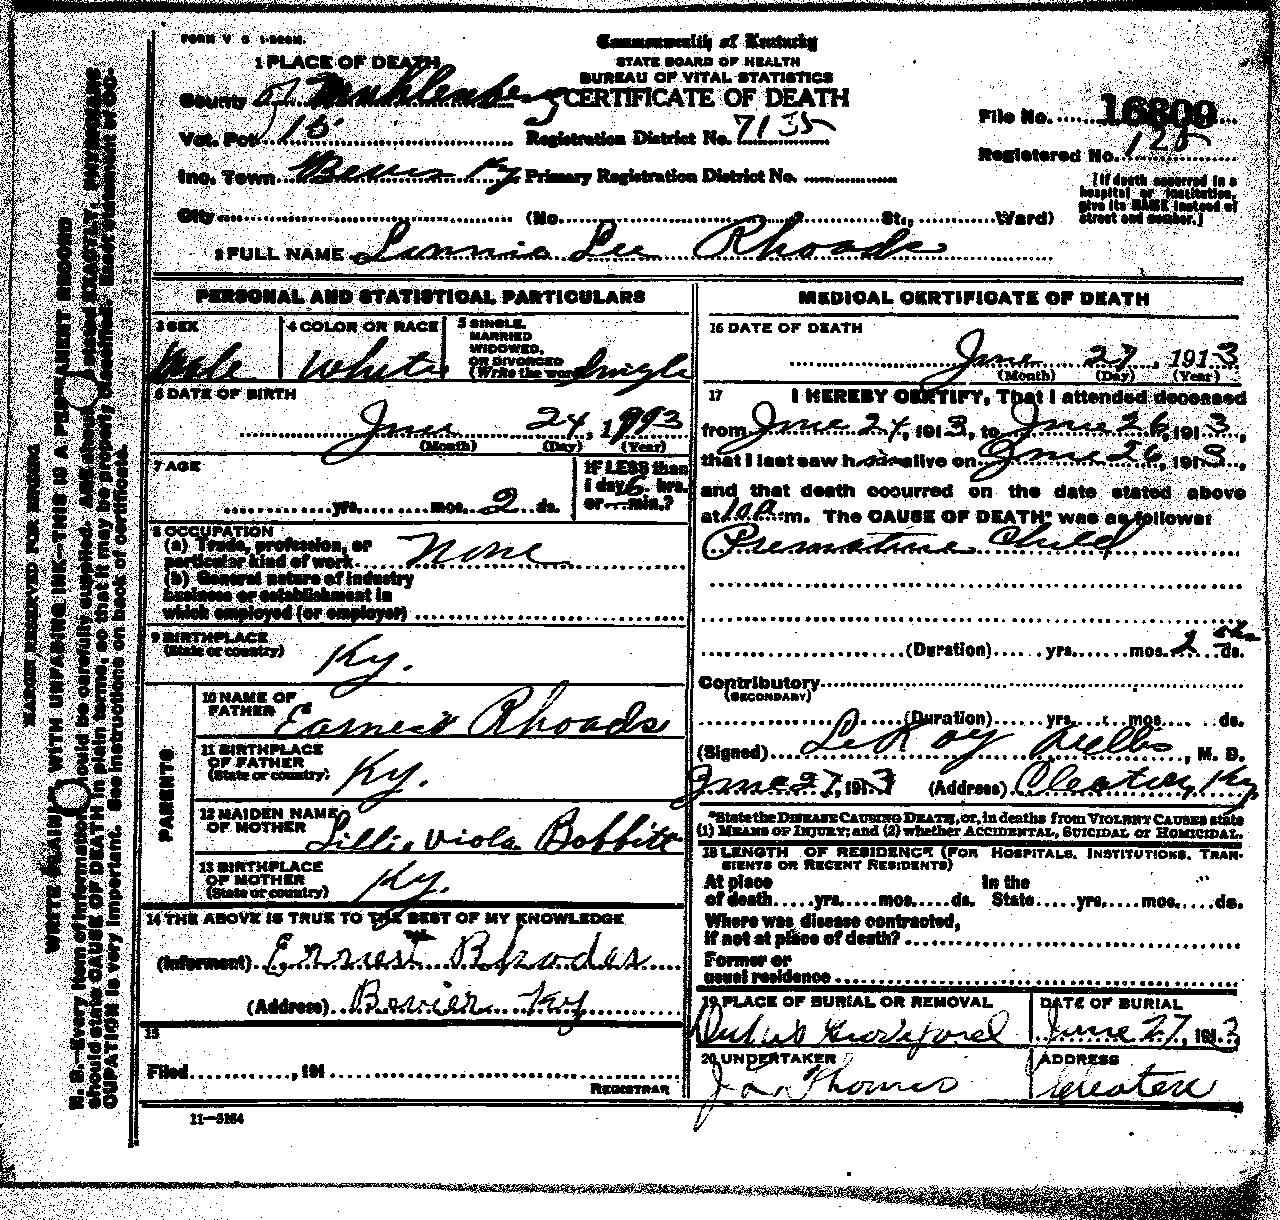 FORM V S 1-520M.
Commonwealth of Kentucky
STATE BOARD OF HEALTH
BUREAU OF VITAL STATISTICS
CERTIFICATE OF DEATH
1 PLACE OF DEATH
County of Muhlenberg
Vot. Pct. 15 Registration District No. 7135
File No. 16809
Registered No. 125
Inc. Town Bevier Ky Primary Registration District No.
[If death occurred in a
hospital or institution,
give its NAME instead of
street and number.]
City (No. St., Ward)
2 FULL NAME Lonnie Lee Rhoads
PERSONAL AND STATISTICAL PARTICULARS
3 SEX Male
4 COLOR OR RACE White
5 SINGLE,
MARRIED
WIDOWED,
OR DIVORCED
(Write the word) Single
6 DATE OF BIRTH
June 24, 1913
(Month) (Day) (Year)
7 AGE
yrs. mos. 2 ds.
IF LESS than
1 day 6 hrs.
or min.?
8 OCCUPATION
(a) Trade, profession, or
particular kind of work None
(b) General nature of industry
business or establishment in
which employed (or employer)
9 BIRTHPLACE
(State or country) Ky.
PARENTS
10 NAME OF
FATHER Earnest Rhoads
11 BIRTHPLACE
OF FATHER
(State or country) Ky.
12 MAIDEN NAME
OF MOTHER Lillie Viola Bobbitt
13 BIRTHPLACE
OF MOTHER
(State or country) Ky.
14 THE ABOVE IS TRUE TO THE BEST OF MY KNOWLEDGE
(Informant) Ernest Rhodes
(Address) Bevier Ky
15
Filed , 191
REGISTRAR
11-3184
MEDICAL CERTIFICATE OF DEATH
16 DATE OF DEATH
June 27, 1913
(Month) (Day) (Year)
17 I HEREBY CERTIFY, That I attended deceased
from June 24, 1913, to June 26, 1913,
that I last saw him alive on June 26, 1913,
and that death occurred on the date stated above
at 10 P. m. The CAUSE OF DEATH* was as follows:
Premature Child
(Duration) yrs. mos. 2 ds.
Contributory
(SECONDARY)
(Duration) yrs. mos. ds.
(Signed) LeRoy Wells, M. D.
June 27, 1913 (Address) Cleaton, Ky
*State the DISEASE CAUSING DEATH, or, in deaths from VIOLENT CAUSES state
(1) MEANS OF INJURY; and (2) whether ACCIDENTAL, SUICIDAL or HOMICIDAL.
18 LENGTH OF RESIDENCE (FOR HOSPITALS, INSTITUTIONS, TRAN-
SIENTS OR RECENT RESIDENTS)
At place In the
of death yrs. mos. ds. State yrs. mos. ds.
Where was disease contracted,
if not at place of death?
Former or
usual residence
19 PLACE OF BURIAL OR REMOVAL
DATE OF BURIAL
June 27, 1913
20 UNDERTAKER
J L Thomas
ADDRESS
Cleaton
MARGIN RESERVED FOR BINDING
WRITE PLAINLY WITH UNFADING INK—THIS IS A PERMANENT RECORD
N. B.—Every item of information should be carefully supplied. AGE should be stated EXACTLY. PHYSICIANS
should state CAUSE OF DEATH in plain terms, so that it may be properly classified. Exact statement of OC-
CUPATION is very important. See instructions on back of certificate.